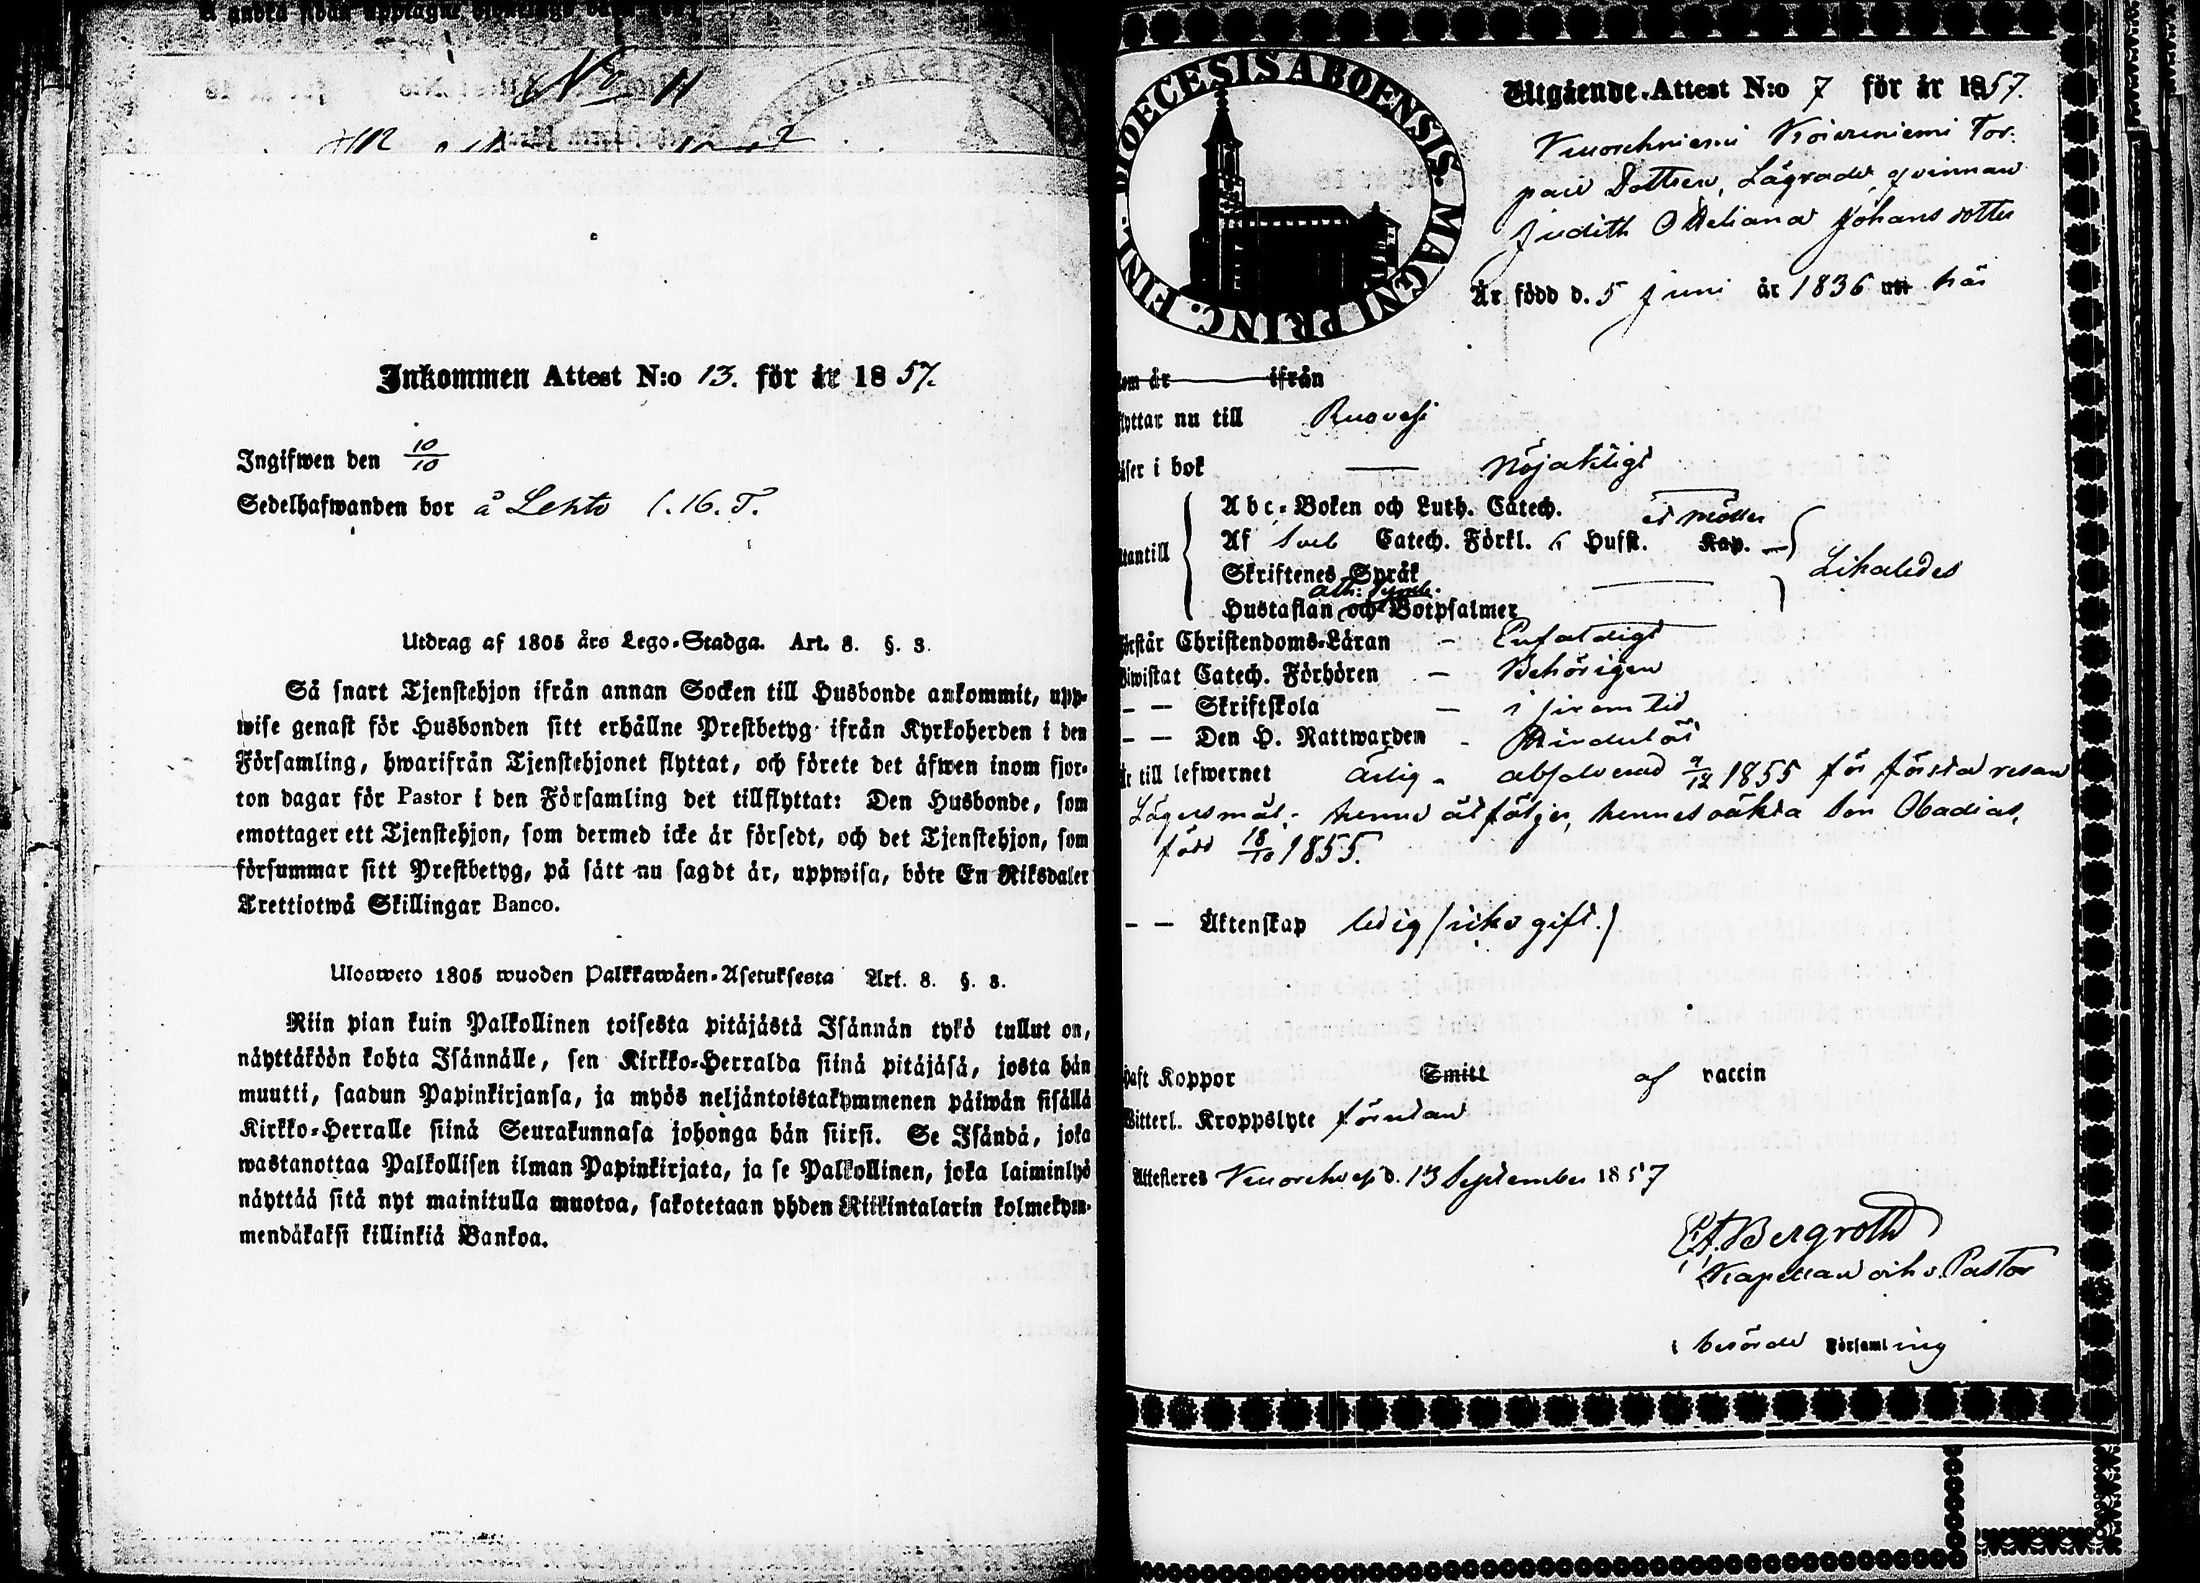 No 11
Inkommen Attest N:o 13. för år 1857.
Ingifwen den 10/10
Sedelhafwanden bor å Lehto l. 16. T.
Utdrag af 1805 års Lego-Stadga. Art. 8. §. 3.
Så snart Tjenstehjon ifrån annan Socken till Husbonde ankommit, upp-
wise genast för Husbonden sitt erhållne Prestbetyg ifrån Kyrkoherden i den
Församling, hwarifrån Tjenstehjonet flyttat, och förete det äfwen inom fjor-
ton dagar för Pastor i den Församling det tillflyttat: Den Husbonde, som
emottager ett Tjenstehjon, som dermed icke är försedt, och det Tjenstehjon, som
försummar sitt Prestbetyg, på sätt nu sagdt är, uppwisa, böte En Riksdaler
Trettiotwå Skillingar Banco.
Ulosweto 1805 wuoden Palkkawäen-Asetuksesta Art. 8. §. 3.
Niin pian kuin Palkollinen toisesta pitäjästä Isännän tykö tullut on,
näyttäköön kohta Isännälle, sen Kirkko-Herralda siinä pitäjäsä, josta hän
muutti, saadun Papinkirjansa, ja myös neljäntoistakymmenen päiwän sisällä
Kirkko-Herralle siinä Seurakunnasa johonga hän siirsi. Se Isändä, joka
wastanottaa Palkollisen ilman Papinkirjata, ja se Palkollinen, joka laiminlyö
näyttää sitä nyt mainitulla muotoa, sakotetaan yhden Riikintalarin kolmekym-
mendäkaksi killinkiä Bankoa.
DIOECESIS ABOENSIS. MAGNI PRINC. FINL.
Utgående Attest N:o 7 för år 1857.
Kuorehniemi Koivuniemi Tor-
pare Dottren, Lägrade qvinnan
Judith Otteliana Johansdotter
Är född d. 5 Juni år 1836 uti här
om år ifrån
flyttar nu till Ruovesi
läser i bok — Nöjaktigt
Abc-Boken och Luth. Catech.
Utantill Af Sveb Catech. Förkl. 6 Hufst. Kap. — Likaledes
Skriftenes Språk
Ath: Symb.
Hustaflan och Botpsalmer
förstår Christendoms-Läran - Enfaldigt
Biwistat Catech. Förhören - Behörigen
- - Skriftskola - i sinom tid
- - Den H. Nattwarden - Hinderlös
Är till lefwernet Ärlig - absolverad 9/12 1855 för första resan
Lägersmål; henne åtföljer, hennes oäkta son Obadias,
född 18/10 1855.
- - Äktenskap ledig (icke gift.)
haft Koppor Smitt af vaccin
Witterl. Kroppslyte förutan
Attesteras Kuorehvesi d. 13 September 1857
E.A. Bergroth
Kapellan och v. Pastor
i berörde Församling